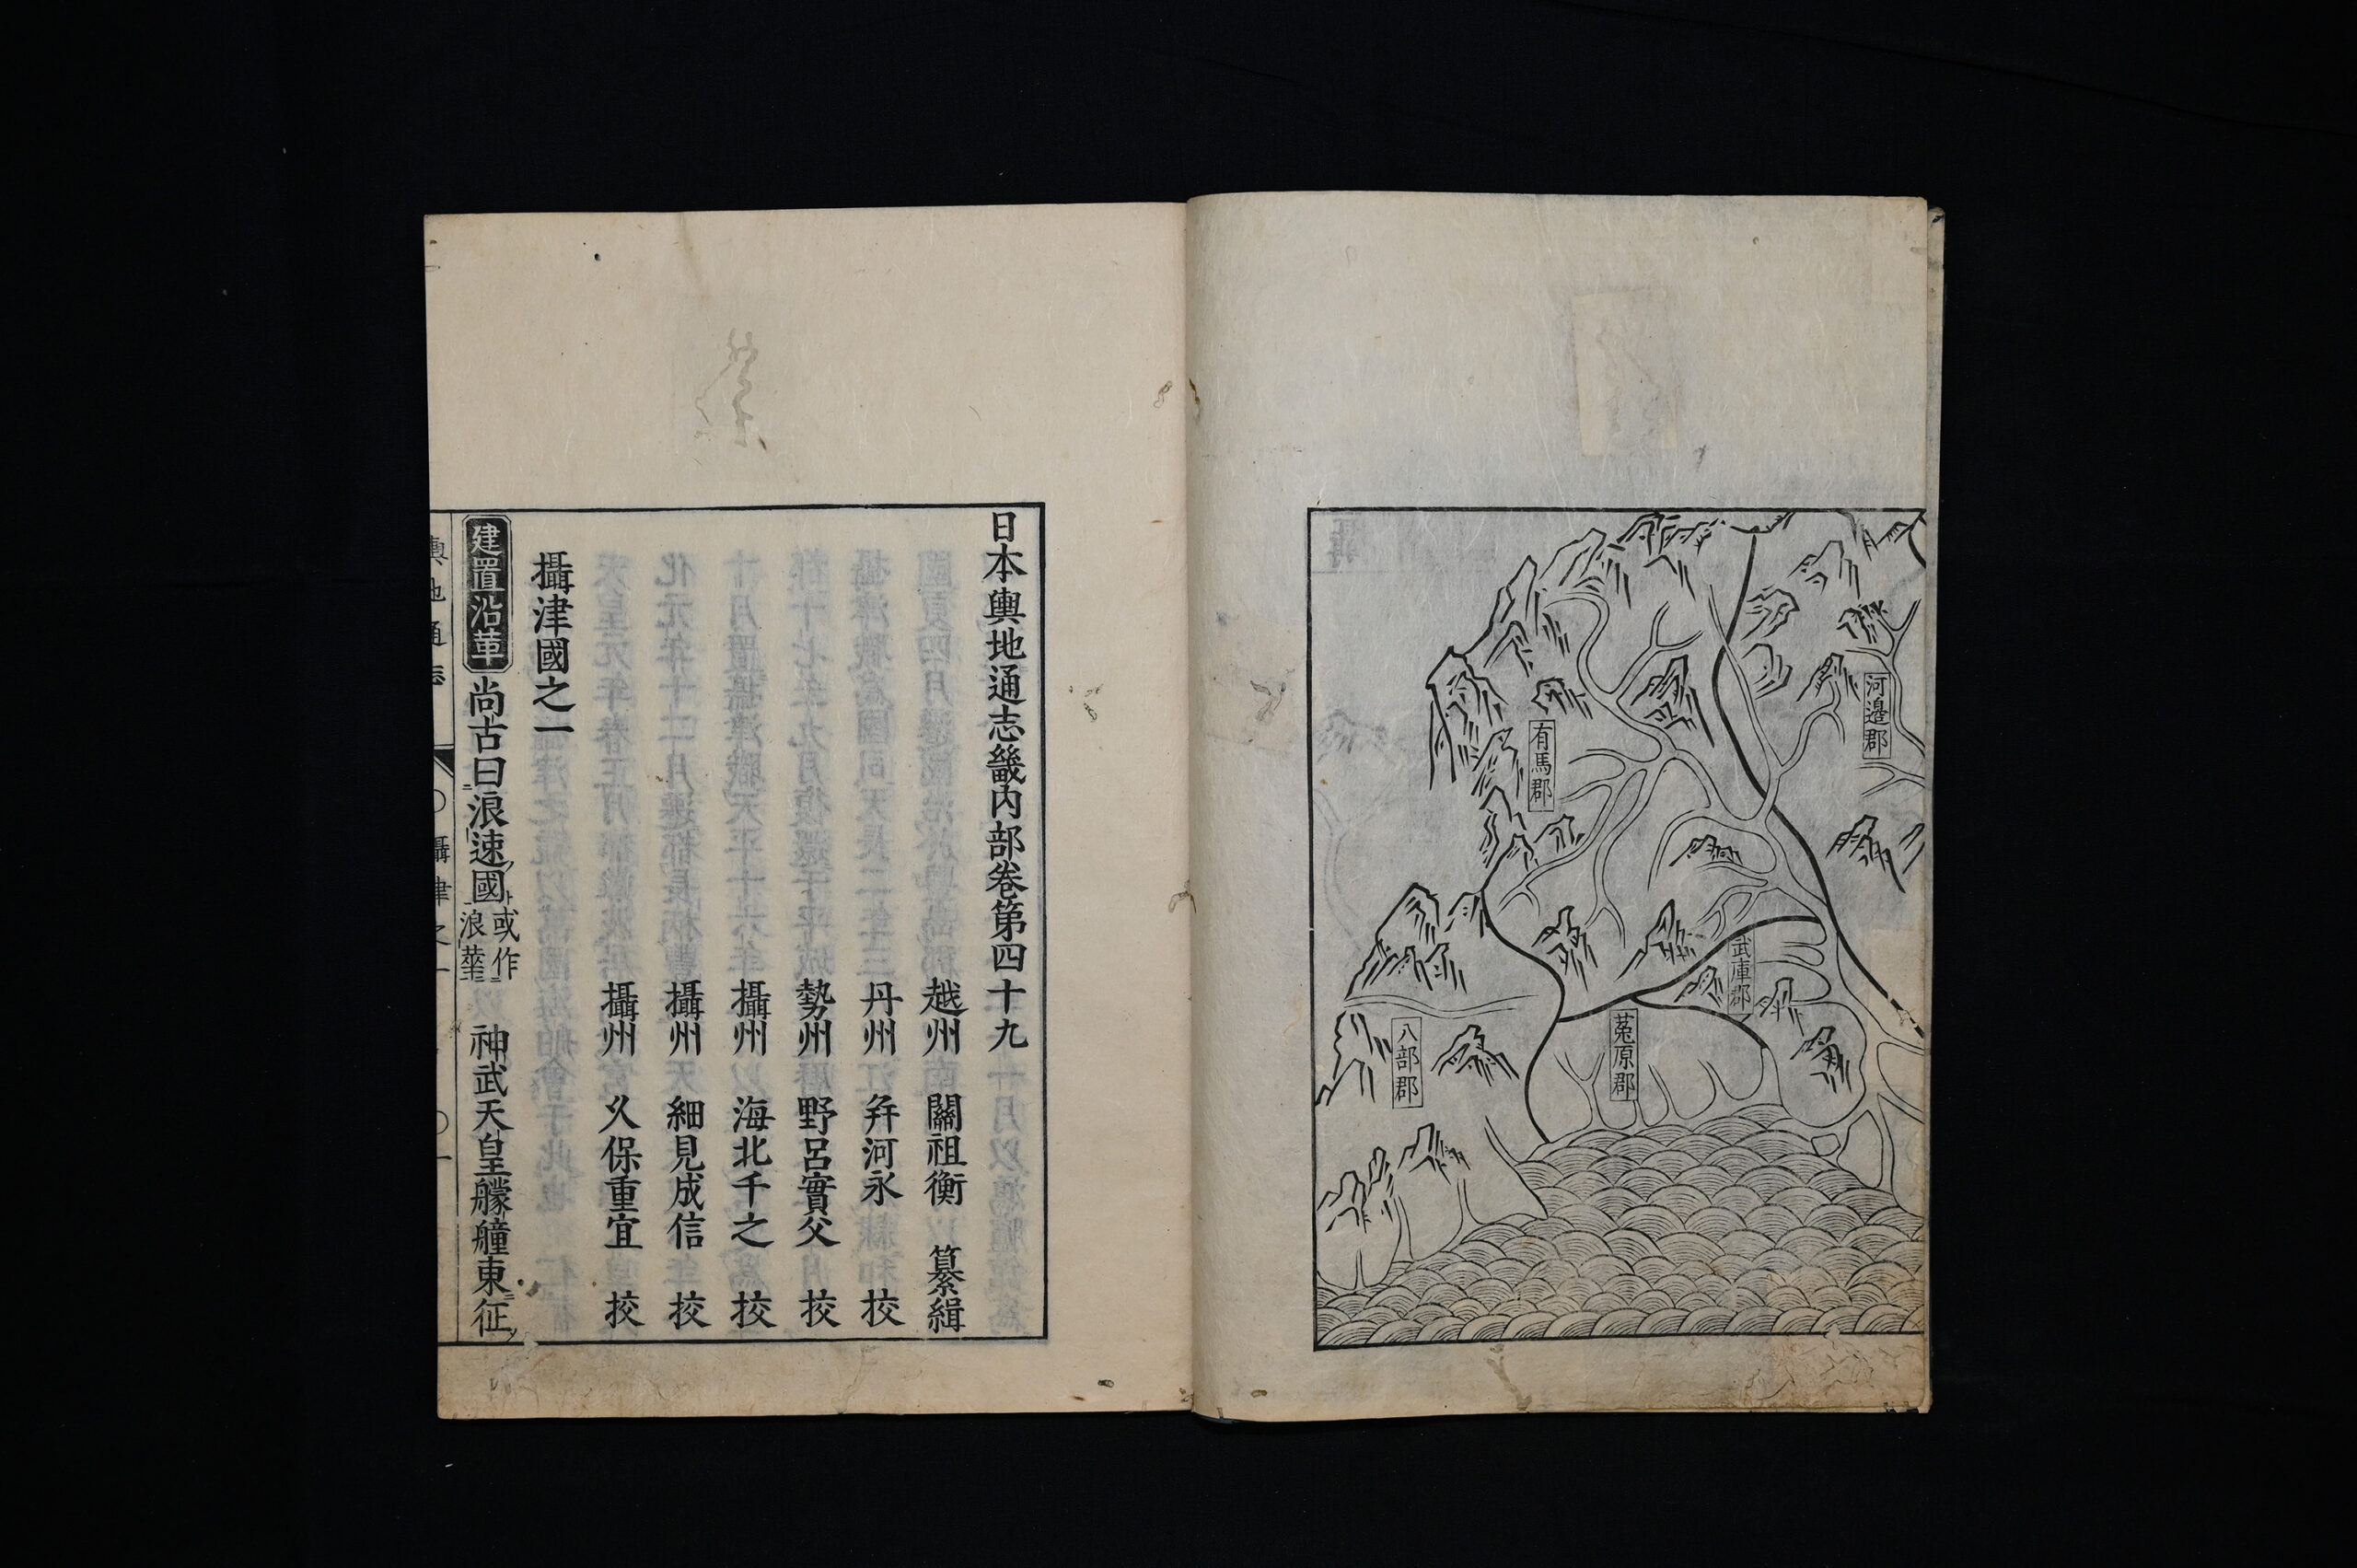 河邉郡
有馬郡
武庫郡
菟原郡
八部郡
日本輿地通志畿内部卷第四十九
越州 關祖衡 纂緝
丹州 幷河永 挍
勢州 野呂實父 挍
攝州 海北千之 挍
攝州 細見成信 挍
攝州 久保重宜 挍
攝津國之一
建置沿革 尚古曰浪速國 或作浪華 神武天皇艨艟東征
輿地通志 攝津之一